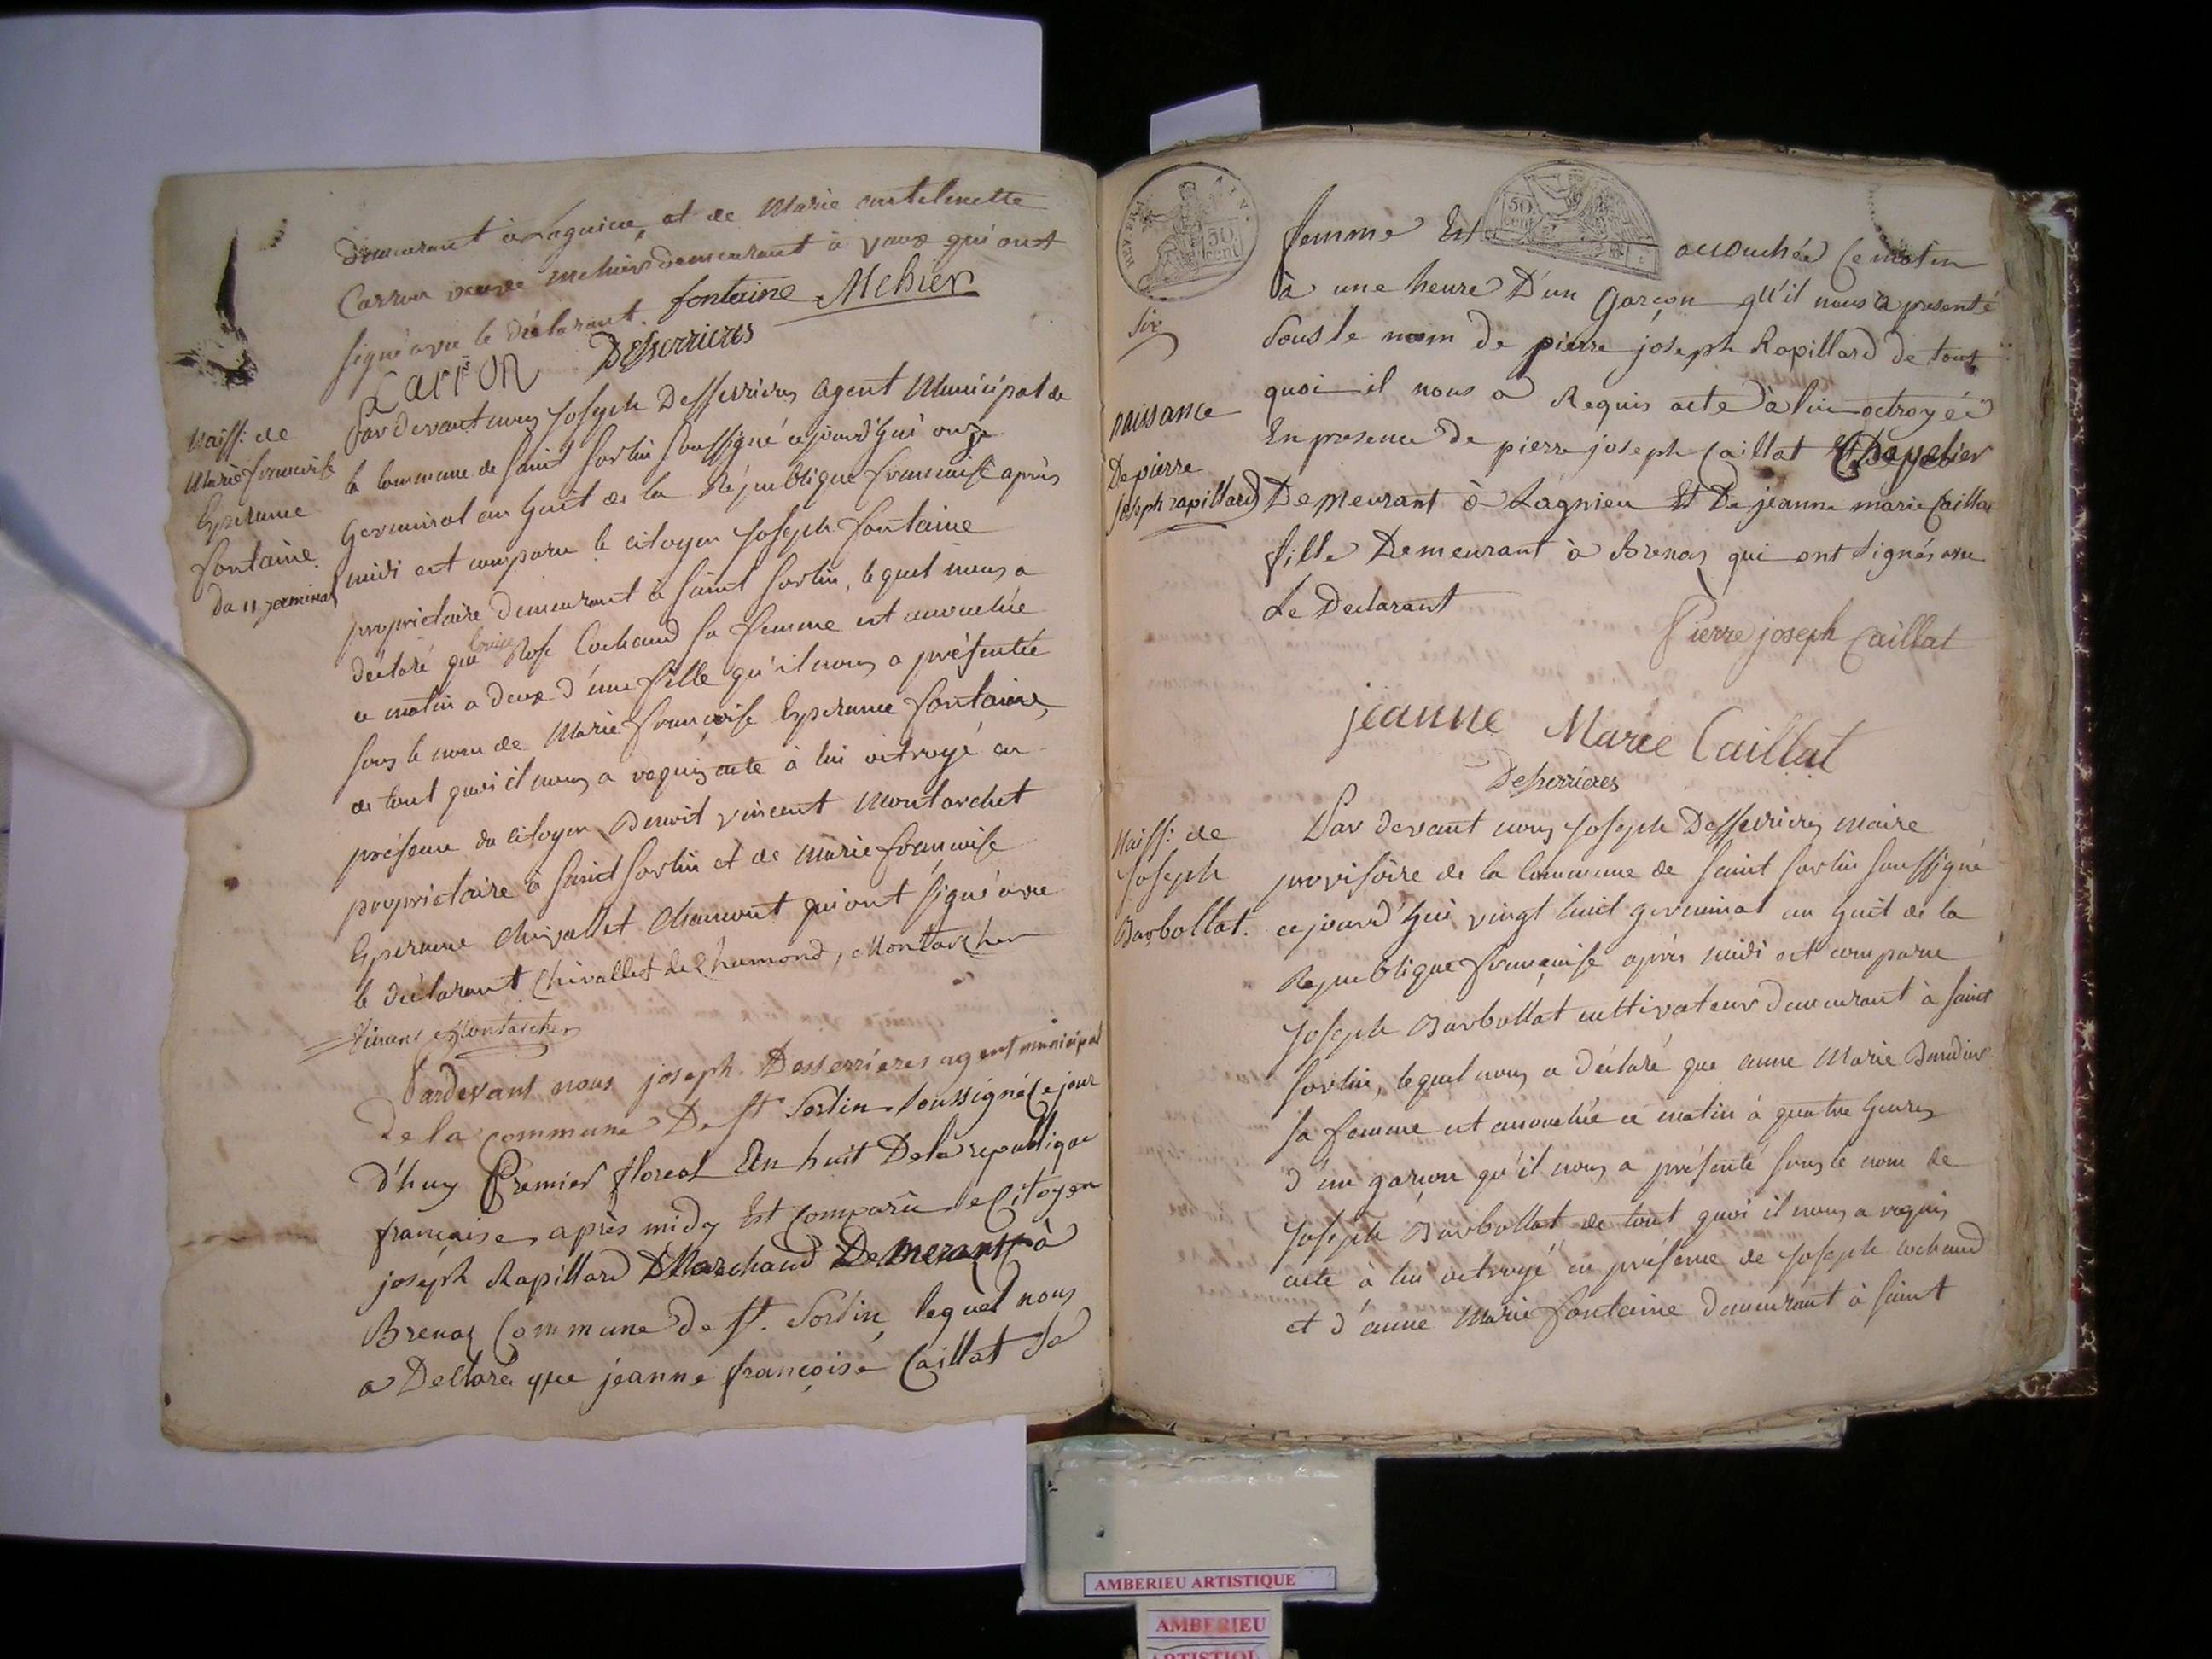 demeurant à Lagnieu, et de Marie antelmette
Carron veuve Mehier demeurant à Vaux qui ont
signé avec le déclarant. fontaine Mehier
Carron Desserrieres
Naiss: de
Marie françoise
Esperance
fontaine.
Du 11 germinal
Par devant nous Joseph Desserrieres agent Municipal de
la commune de Saint Sorlin soussigné cejourd'hui onze
Germinal an huit de la République française après
midi est comparu le citoyen Joseph fontaine
propriétaire demeurant à Saint Sorlin, lequel nous a
déclaré que Louise Rose Cochaud sa femme est accouchée
ce matin a deux d'une fille qu'il nous a présentée
sous le nom de Marie françoise Esperance fontaine,
de tout quoi il nous a requis acte à lui octroyé en
présence du citoyen Benoit Vincent Montarchet
propriétaire à Saint Sorlin et de Marie françoise
Esperance Chivallet Chaumont qui ont signé avec
le déclarant. Chivallet de Chaumond, Montarcher
Montarcher
Pardevant nous joseph Desserrieres agent municipal
De la Commune De St Sorlin soussigné Ce jour
d'huy Premier floreal An huit De la republique
française après midy Est Comparu le Citoyen
joseph Rapillard Marchand Demerant à
Brenaz Commune De St. Sorlin lequel nous
a Declaré que jeanne françoise Caillat sa
REP. FRA.
50
cent
50
cent
femme Est accouchée ce matin
à une heure D'un Garçon qu'il nous a presenté
Sous le nom de pierre joseph Rapillard De tout
quoi il nous a Requis acte à lui octroyée
En presence de pierre joseph Caillat Chapelier
naissance
De pierre
joseph rapillard
Demeurant à Lagnieu Et De jeanne marie Caillat
fille Demeurant à Brenaz qui ont signés avec
Le Declarant
Pierre joseph Caillat
jeanne Marie Caillat
Desserrieres
Naiss: de
Joseph
Barbollat.
Par devant nous Joseph Desserrieres maire
provisoire de la commune de Saint Sorlin soussigné
cejourd'hui vingt huit germinal an huit de la
République française après midi est comparu
Joseph Barbollat cultivateur demeurant à Saint
Sorlin, lequel nous a déclaré que anne Marie
sa femme est accouchée ce matin à quatre heures
d'un garçon qu'il nous a présenté sous le nom de
Joseph Barbollat de tout quoi il nous a requis
acte à lui octroyé en présence de Joseph Cochaud
et d'anne Marie fontaine demeurant à Saint
AMBERIEU ARTISTIQUE
AMBERIEU
ARTISTIQUE